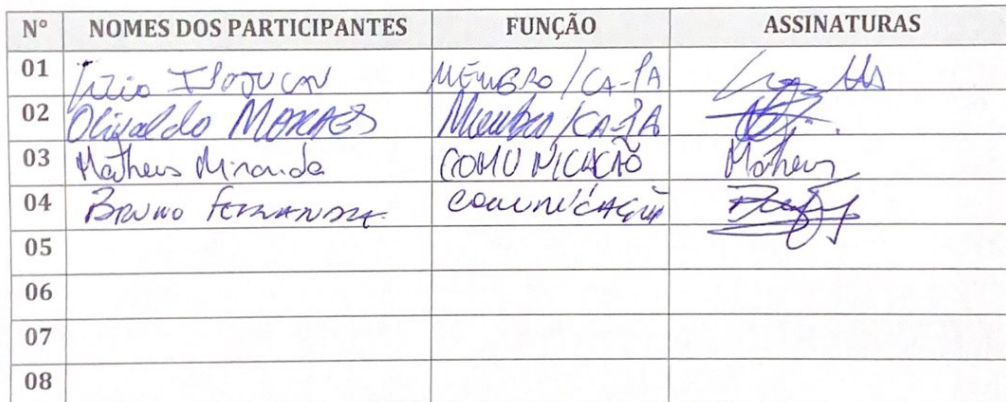 N° NOMES DOS PARTICIPANTES FUNÇÃO ASSINATURAS
01 IPOJUCAN MEMBRO/CA-PA
02 Olivaldo MORAES Membro/CA-PA
03 Matheus Miranda COMUNICAÇÃO Matheus
04 BRUNO FERNANDES COMUNICAÇÃO
05
06
07
08